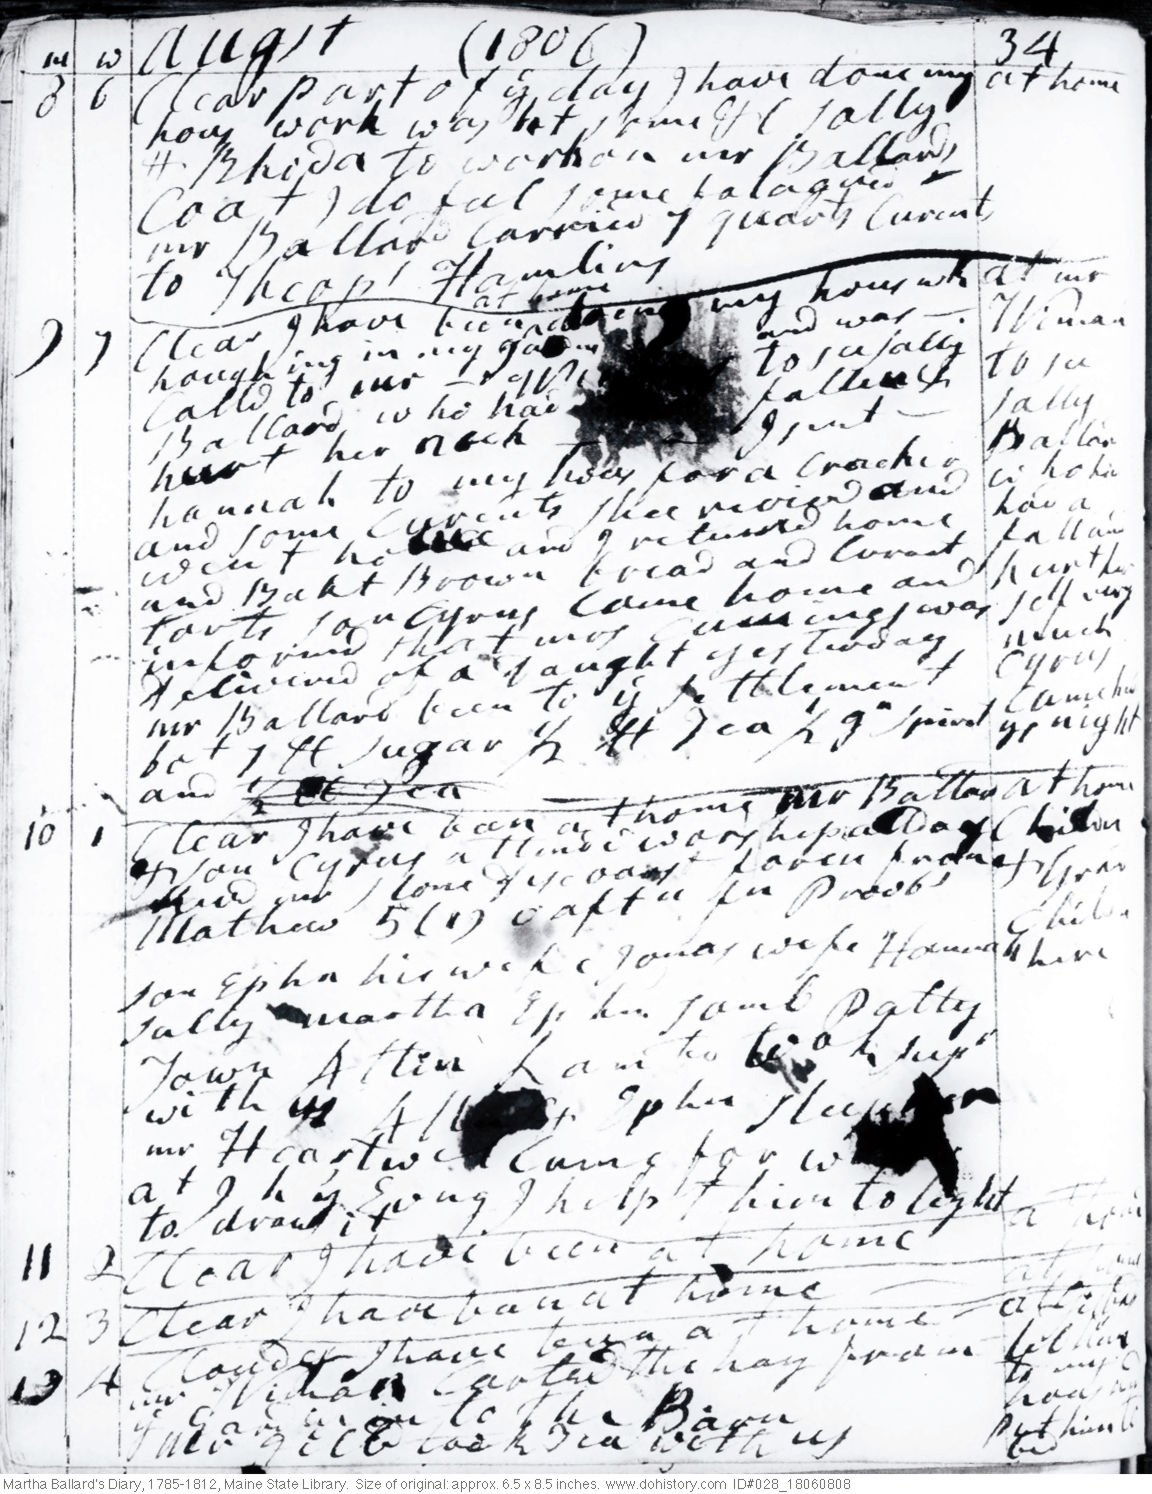 m w August (1806) 34
8 6 Clear part of ye day I have done my at home
hous work washt some &C Sally
& Rhida to work on mr Ballards
Coat I do feel some
mr Ballard Carried 7 quarts Curents
to Theop' Hamlins
at home
9 7 Clear I have been doing my hous wk at mr
houghing in my and was Wiman
Calld to mr to se Sally to se
Ballard who had fallen & Sally
hurt her neck I sent Ballard
hannah to my hous for a Cracker who
and some Curents Shee revived and had a
went home and I returnd home fall and
and Bakt Brown bread and Curent hurt her
tarts son Cyrus Came home and self very
informd that mrs Cummings was much
Delivered of a Daught yesterday Cyrus
mr Ballard been to ye settlement Came here
bot 7 lb Sugar ½ lb Tea ½ gn Spirit ys night
and ½ lb Tea
10 1 Clear I have been at home mr Ballard at home
& son Cyrus attended worship all Day Children
mr Stone discoarst foren from & Gran
Mathew 5 aftn in Provbs Children
son Ephm his wife & Jonas wife Hannah here
Sally martha Ephm Saml Patty
Town Allin Lam to took supr
with us All & Ephm
mr Heartwell Came for
at ye Evng I helpt him to leght
to draw it at home
11 2 Clear I have been at home
12 3 Clear I have been at home at home
13 4 Cloudy I have been at home
mr Wiman Carted the hay from to my
ye into the Barn hous
took Tea with us put him to
bed
Martha Ballard's Diary, 1785-1812, Maine State Library. Size of original: approx. 6.5 x 8.5 inches. www.dohistory.com ID#028_18060808